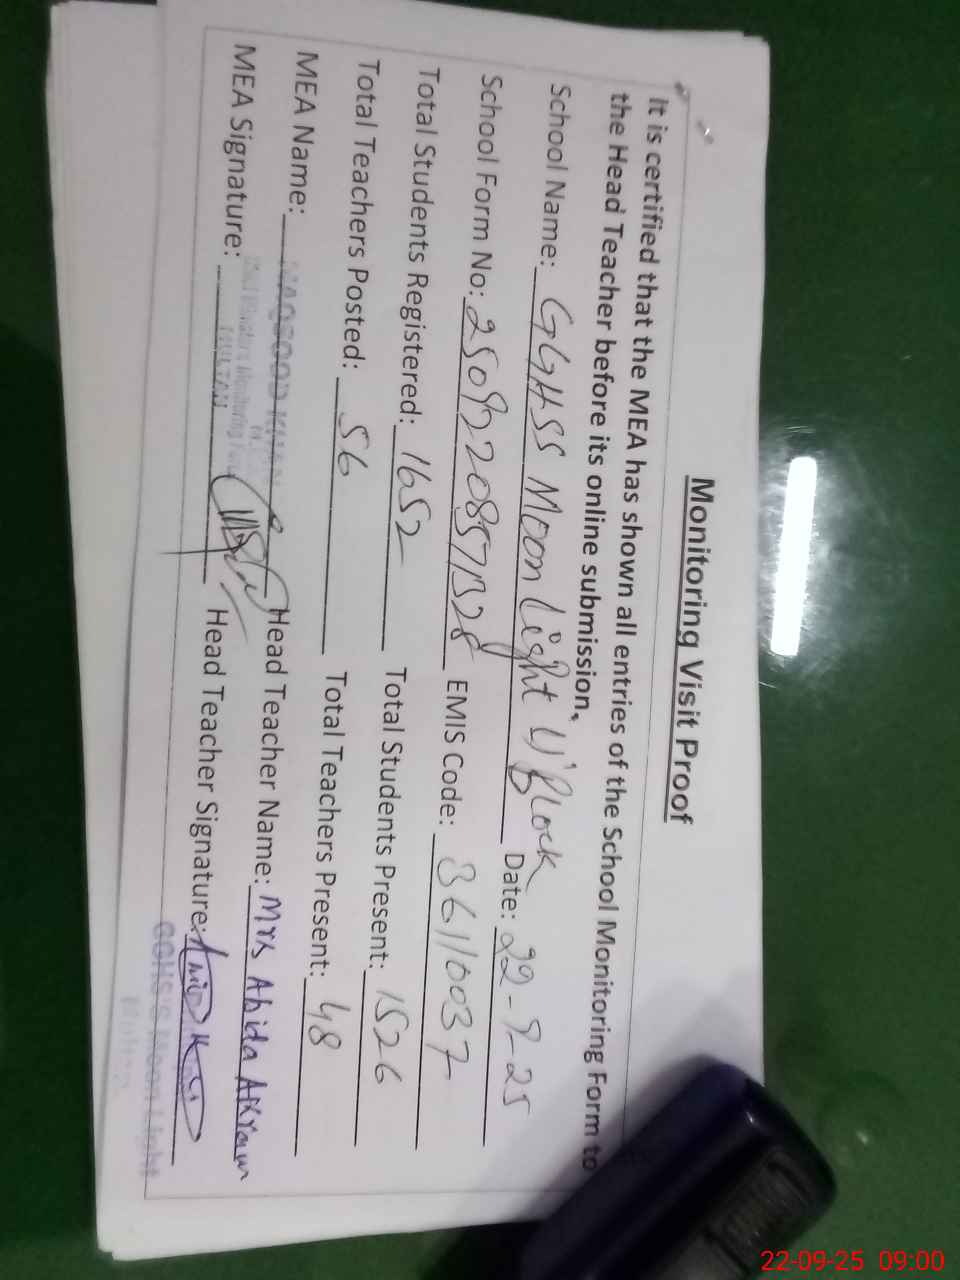 Monitoring Visit Proof
It is certified that the MEA has shown all entries of the School Monitoring Form to
the Head Teacher before its online submission.
School Name: GGHSS Moon Light U'Block Date: 22-9-25
School Form No: 25092208571528 EMIS Code: 36110037
Total Students Registered: 1652 Total Students Present: 1526
Total Teachers Posted: 56 Total Teachers Present: 48
MEA Name: MAQSOOD Head Teacher Name: Mrs Abida Akram
MEA Signature: MULTAN Head Teacher Signature:
GGHSS Moon Light
Multan
22-09-25 09:00